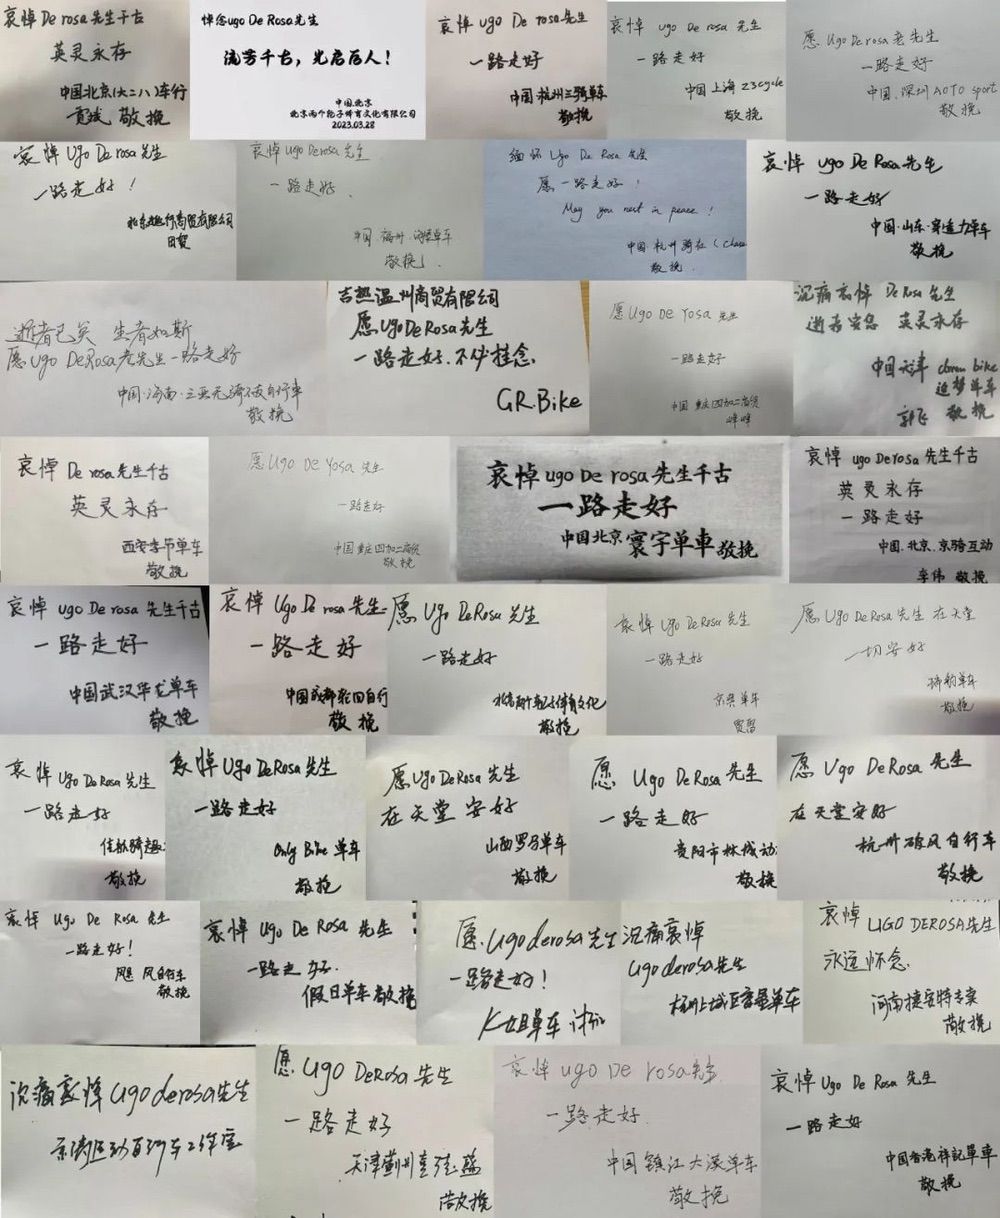 哀悼De rosa先生千古
英灵永存
中国北京(大二八)车行
敬挽
悼念ugo De Rosa先生
流芳千古，光启后人！
中国.北京
北京两个轮子体育文化有限公司
2023.03.28
哀悼 ugo De rosa先生
一路走好
中国·杭州三骑单车
敬挽
哀悼 ugo De rosa 先生
一路走好
中国上海 23cycle
敬挽
愿 Ugo De rosa 老先生
一路走好
中国.深圳 AOTO sport
敬挽
哀悼 Ugo De rosa 先生
一路走好！
商贸有限公司
哀悼 ugo De rosa 先生
一路走好.
中国·福州·单车
敬挽
缅怀 Ugo De Rosa 先生
愿一路走好！
May you rest in peace！
中国·杭州骑在(Chase
敬挽
哀悼 ugo De Rosa 先生
一路走好
中国·山东·单车
敬挽
逝者已矣 生者如斯
愿Ugo DeRosa老先生一路走好
中国·海南·三亚无骑不友自行车
敬挽
吉热温州商贸有限公司
愿Ugo De Rosa先生
一路走好.不必挂念.
GR.Bike
愿Ugo De rosa 先生
一路走好
中国重庆四加二商贸
峰峰
沉痛哀悼 De Rosa 先生
逝者安息 英灵永存
中国天津 bike
追梦单车
郭飞 敬挽
哀悼 De rosa 先生千古
英灵永存
西安单车
敬挽
愿Ugo De rosa 先生
一路走好
中国重庆四加二商贸
敬挽
哀悼ugo De rosa先生千古
一路走好
中国北京 寰宇单車 敬挽
哀悼 ugo De rosa先生千古
英灵永存
一路走好
中国.北京.京骑互动
李伟 敬挽
哀悼 ugo De rosa 先生千古
一路走好
中国武汉华龙单车
敬挽
哀悼 Ugo De rosa 先生
一路走好
中国成都轮回自行
敬挽
愿Ugo DeRosa 先生
一路走好
北京两个轮子体育文化
敬挽
哀悼 Ugo DeRosa 先生
一路走好
单车
愿 Ugo De Rosa 先生 在天堂
一切安好
单车
敬挽
哀悼 Ugo DeRosa 先生
一路走好
佳木骑趣
敬挽
哀悼Ugo DeRosa 先生
一路走好
Only Bike 单车
敬挽
愿Ugo DeRosa 先生
在天堂安好
山西罗马单车
敬挽
愿 Ugo DeRosa 先生
一路走好
贵阳市林城动
敬挽
愿 Ugo DeRosa 先生
在天堂安好
杭州破风自行车
敬挽
哀悼 Ugo De Rosa 先生
一路走好！
风自行车
敬挽
哀悼 Ugo De Rosa 先生
一路走好.
假日单车 敬挽
愿.Ugo derosa先生
一路走好！
K姐单车
沉痛哀悼
Ugo derosa先生
杭州上城区单车
哀悼 UGO DEROSA先生
永远怀念.
河南捷安特专卖
敬挽
沉痛哀悼Ugo derosa先生
自行车工作室
愿 Ugo DeRosa 先生
一路走好
天津蓟州
敬挽
哀悼 ugo De rosa先生.
一路走好.
中国镇江大漠单车
敬挽
哀悼 Ugo De Rosa 先生
一路走好
中国香港祥記單車
敬挽